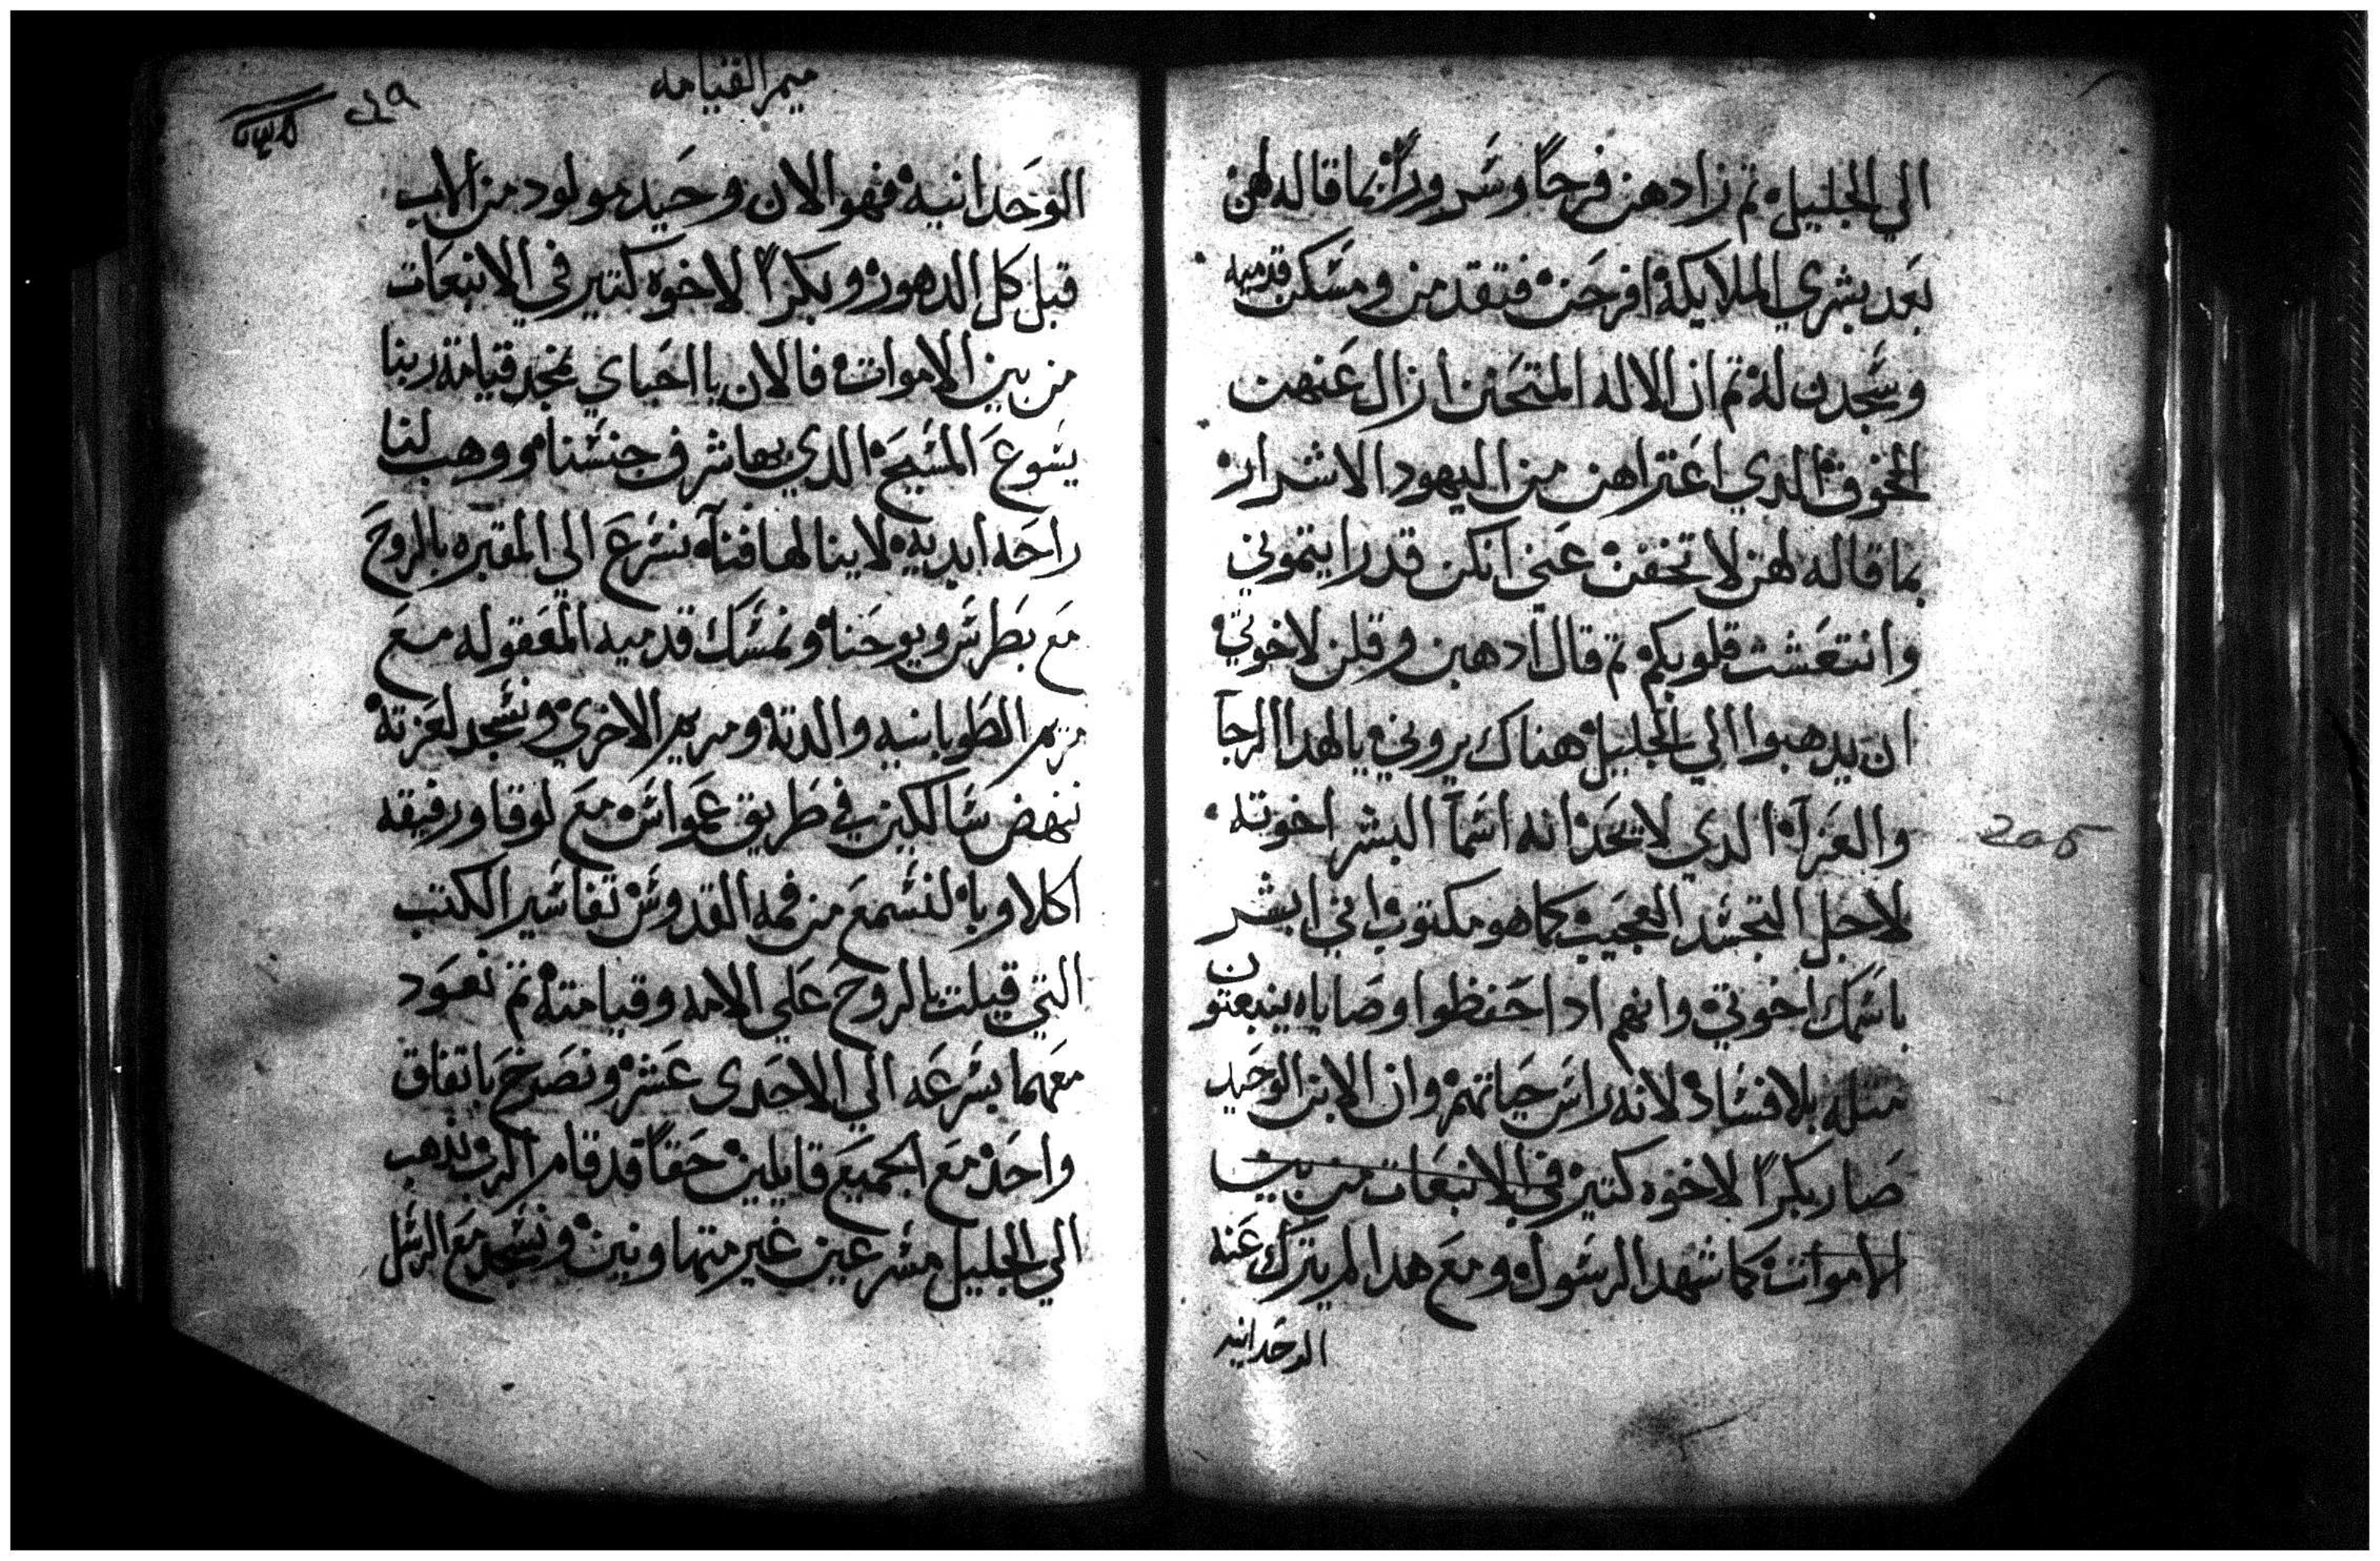 الي الجليل ثم زادهن فرحاً وسروراً بما قاله لهن
بعد بشري الملايكة افرحن فتقدمن ومسكن قدميه
وسجدن له ثم ان الاله المتحنن ازال عنهن
الخوف الدي اعتراهن من اليهود الاشرار
بما قاله لهن لا تخفن عني انكن قد رايتموني
وانتعشت قلوبكم ثم قال ادهبن وقلن لاخوتي
ان يدهبوا الي الجليل هناك يروني يا لهدا الرجآ
والعزآ الدي لا يحد انه اسمآ البشر اخوته
لاجل التجسد العجيب كما هو مكتوب اني ابشر
باسمك اخوتي وانهم ادا حفظوا وصاياه ينبعتون
متله بلا فساد لانه راس حياتهم وان الابن الوحيد
صار بكراً لاخوه كتير في الانبعات من بين
الاموات كما شهد الرسول ومع هدا لم يترك عنه
الوحدانيه
205
ميمر القيامه
الوحدانيه فهو الان وحيد مولود من الاب
قبل كل الدهور وبكراً لاخوه كتير في الانبعات
من بين الاموات فالان يا احباي نمجد قيامة ربنا
يسوع المسيح الدي بها شرف جنسنا ووهب لنا
راحه ابديه لاينالها فنآ نسرع الي المقبره بالروح
مع بطرس ويوحنا ونمسك قدميه المعقوله مع
مريم الطوبانيه والدته ومريم الاخري ونسجد لعزته
ننهض سالكين في طريق عمواس مع لوقا ورفيقه
اكلاوبا لنسمع من فمه القدوس تفاسير الكتب
التي قيلت بالروح علي الامه وقيامته ثم نعود
معهما بسرعه الي الاحدى عشر ونصرخ باتفاق
واحد مع الجميع قايلين حقاً قد قام الرب ندهب
الي الجليل مسرعين غير متهاونين ونسجد مع الرسل